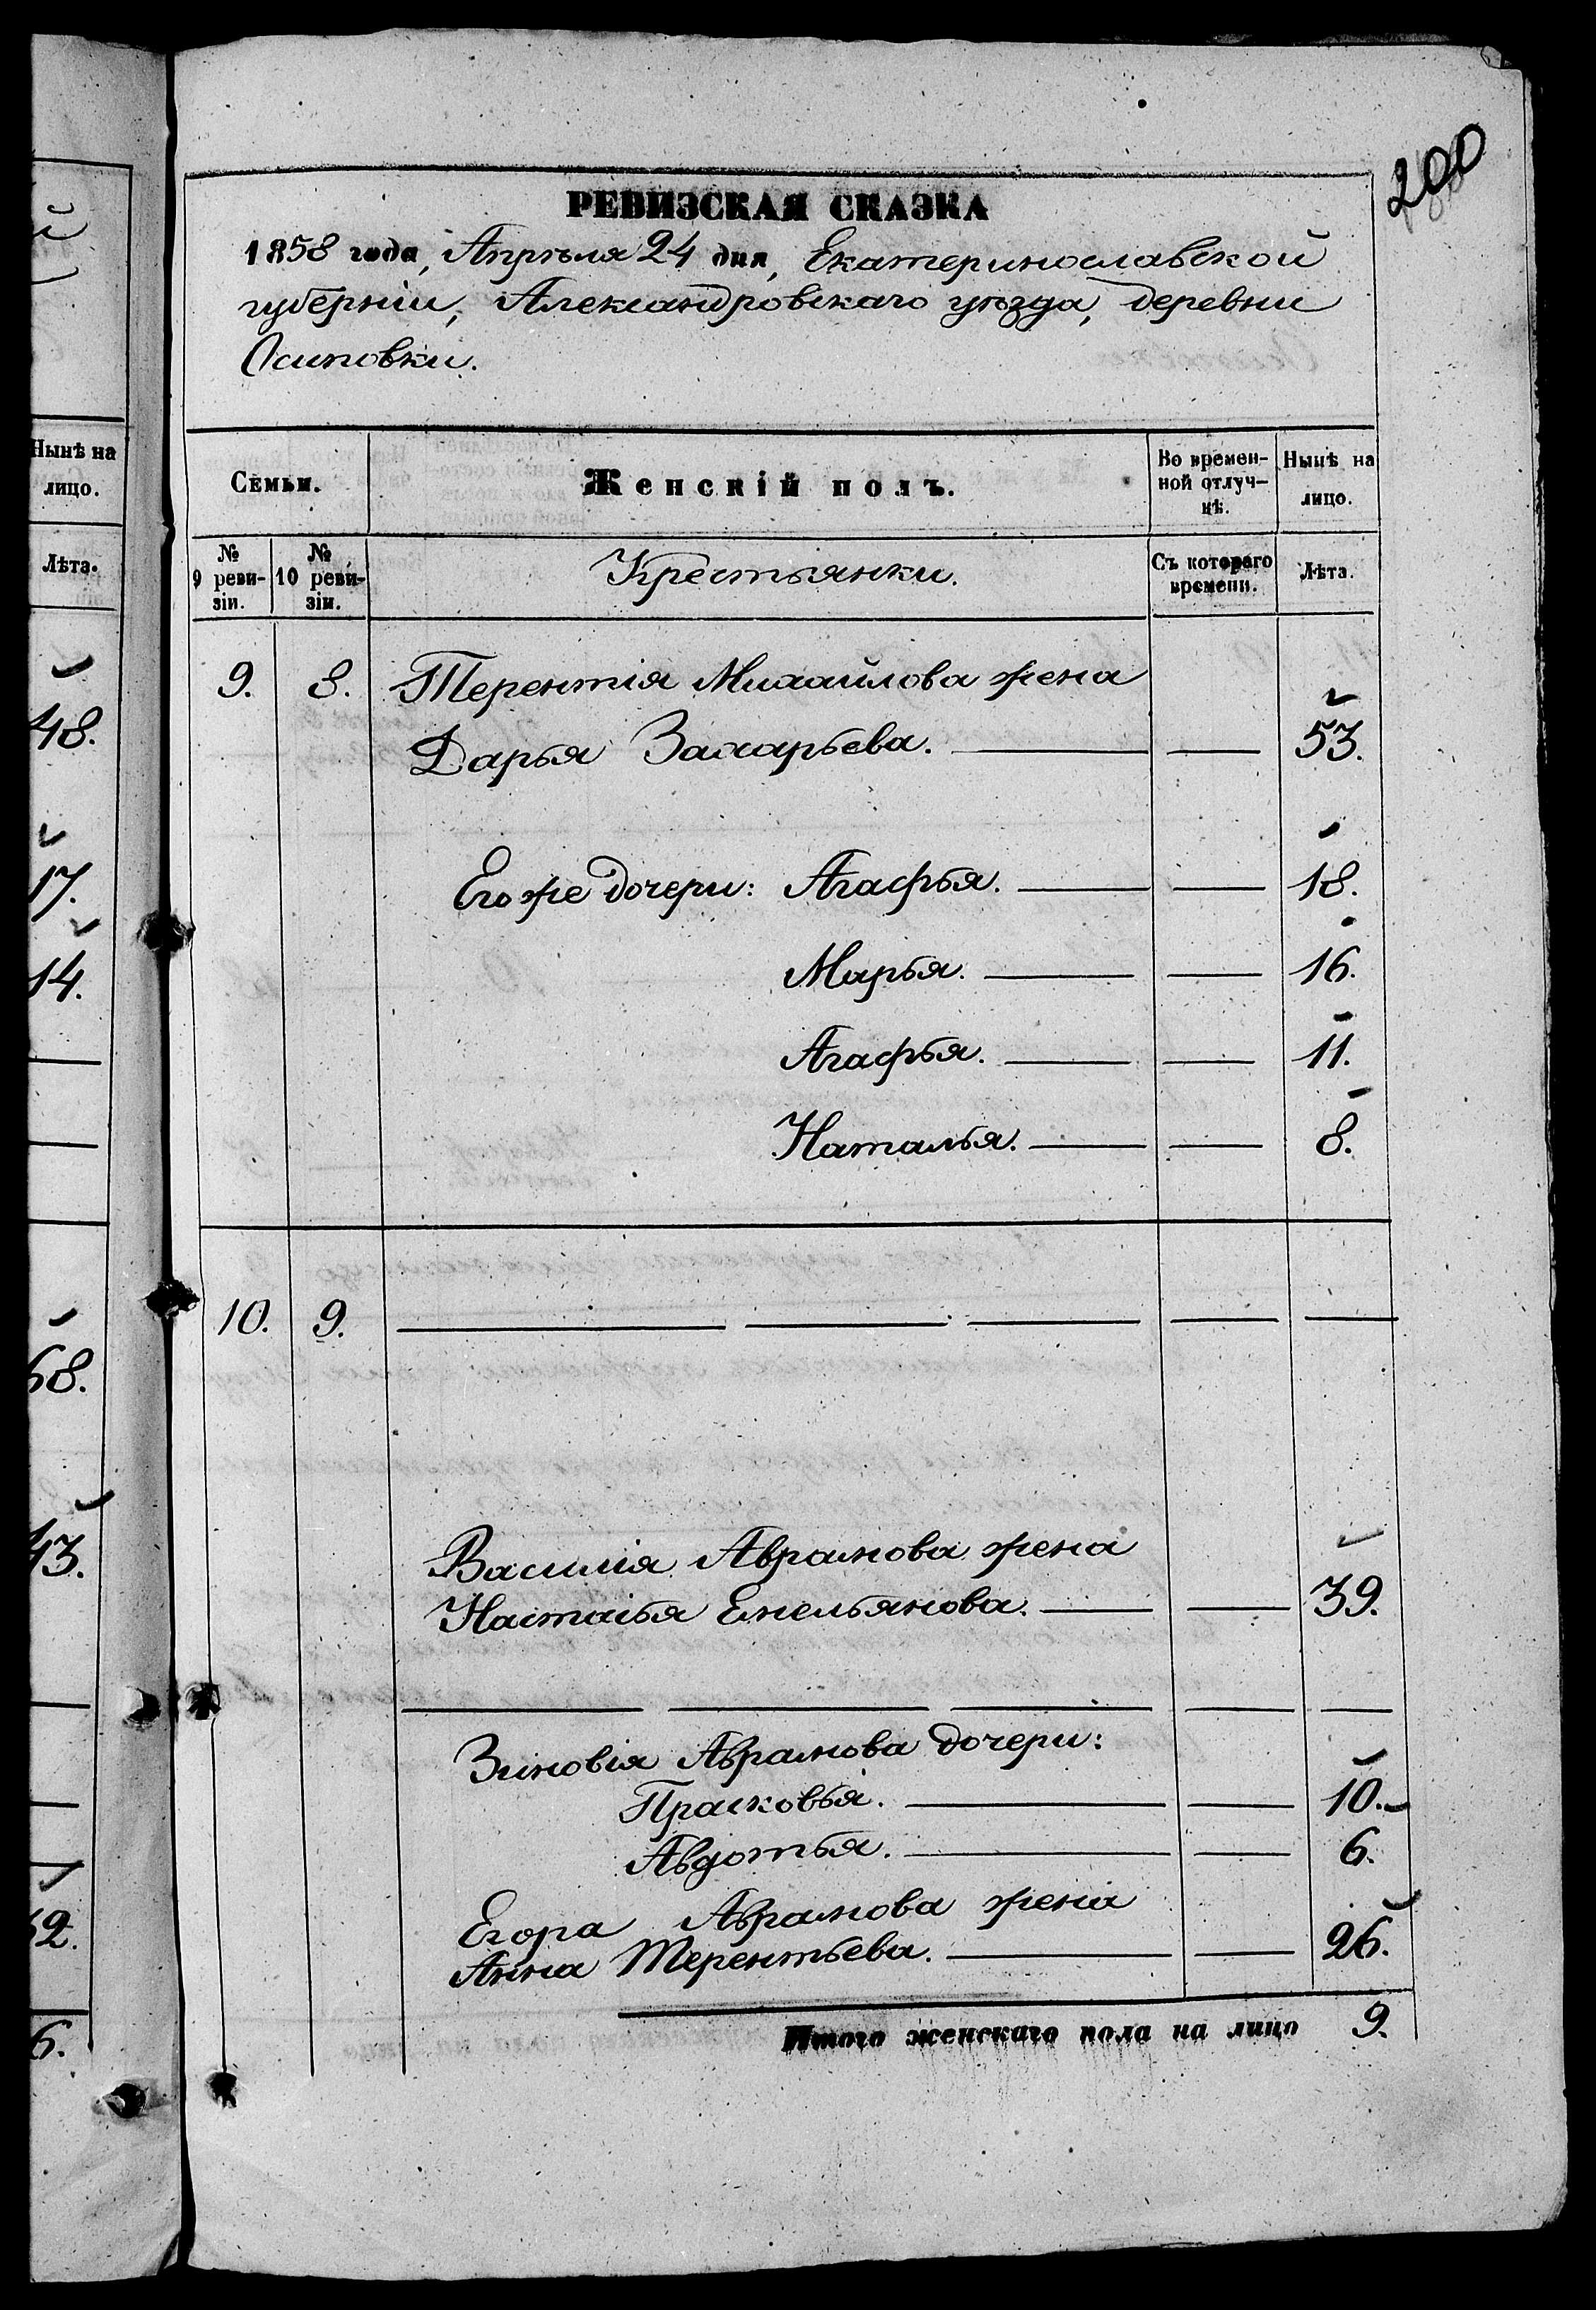 200
РЕВИЗСКАЯ СКАЗКА
1858 года, Апрѣля 24 дня, Екатеринославской
губерніи, Александровскаго уѣзда, деревни
Осиповки.
Нынѣ на
лицо.
Лѣта.
48.
17.
14.
68.
43.
6.
Семьи.
Женскій полъ.
Во времен-
ной отлуч-
кѣ.
Нынѣ на
лицо.
№
9 реви-
зіи.
№
10 реви-
зіи.
Крестьянки.
Съ котораго
времени.
Лѣта.
9. 8. Терентія Михайлова жена
Дарья Захарьева. — — 53.
Его же дочери: Агафья. — — 18.
Марья. — — 16.
Агафья. — — 11.
Наталья. — — 8.
10. 9. — — — — —
Василія Аврамова жена
Настасья Емельянова. — — 39.
— — — — —
Зиновія Аврамова дочери:
Прасковья. — — 10.
Авдотья. — — 6.
Егора Аврамова жена
Анна Терентьева. — — 26.
Итого женскаго пола на лицо 9.